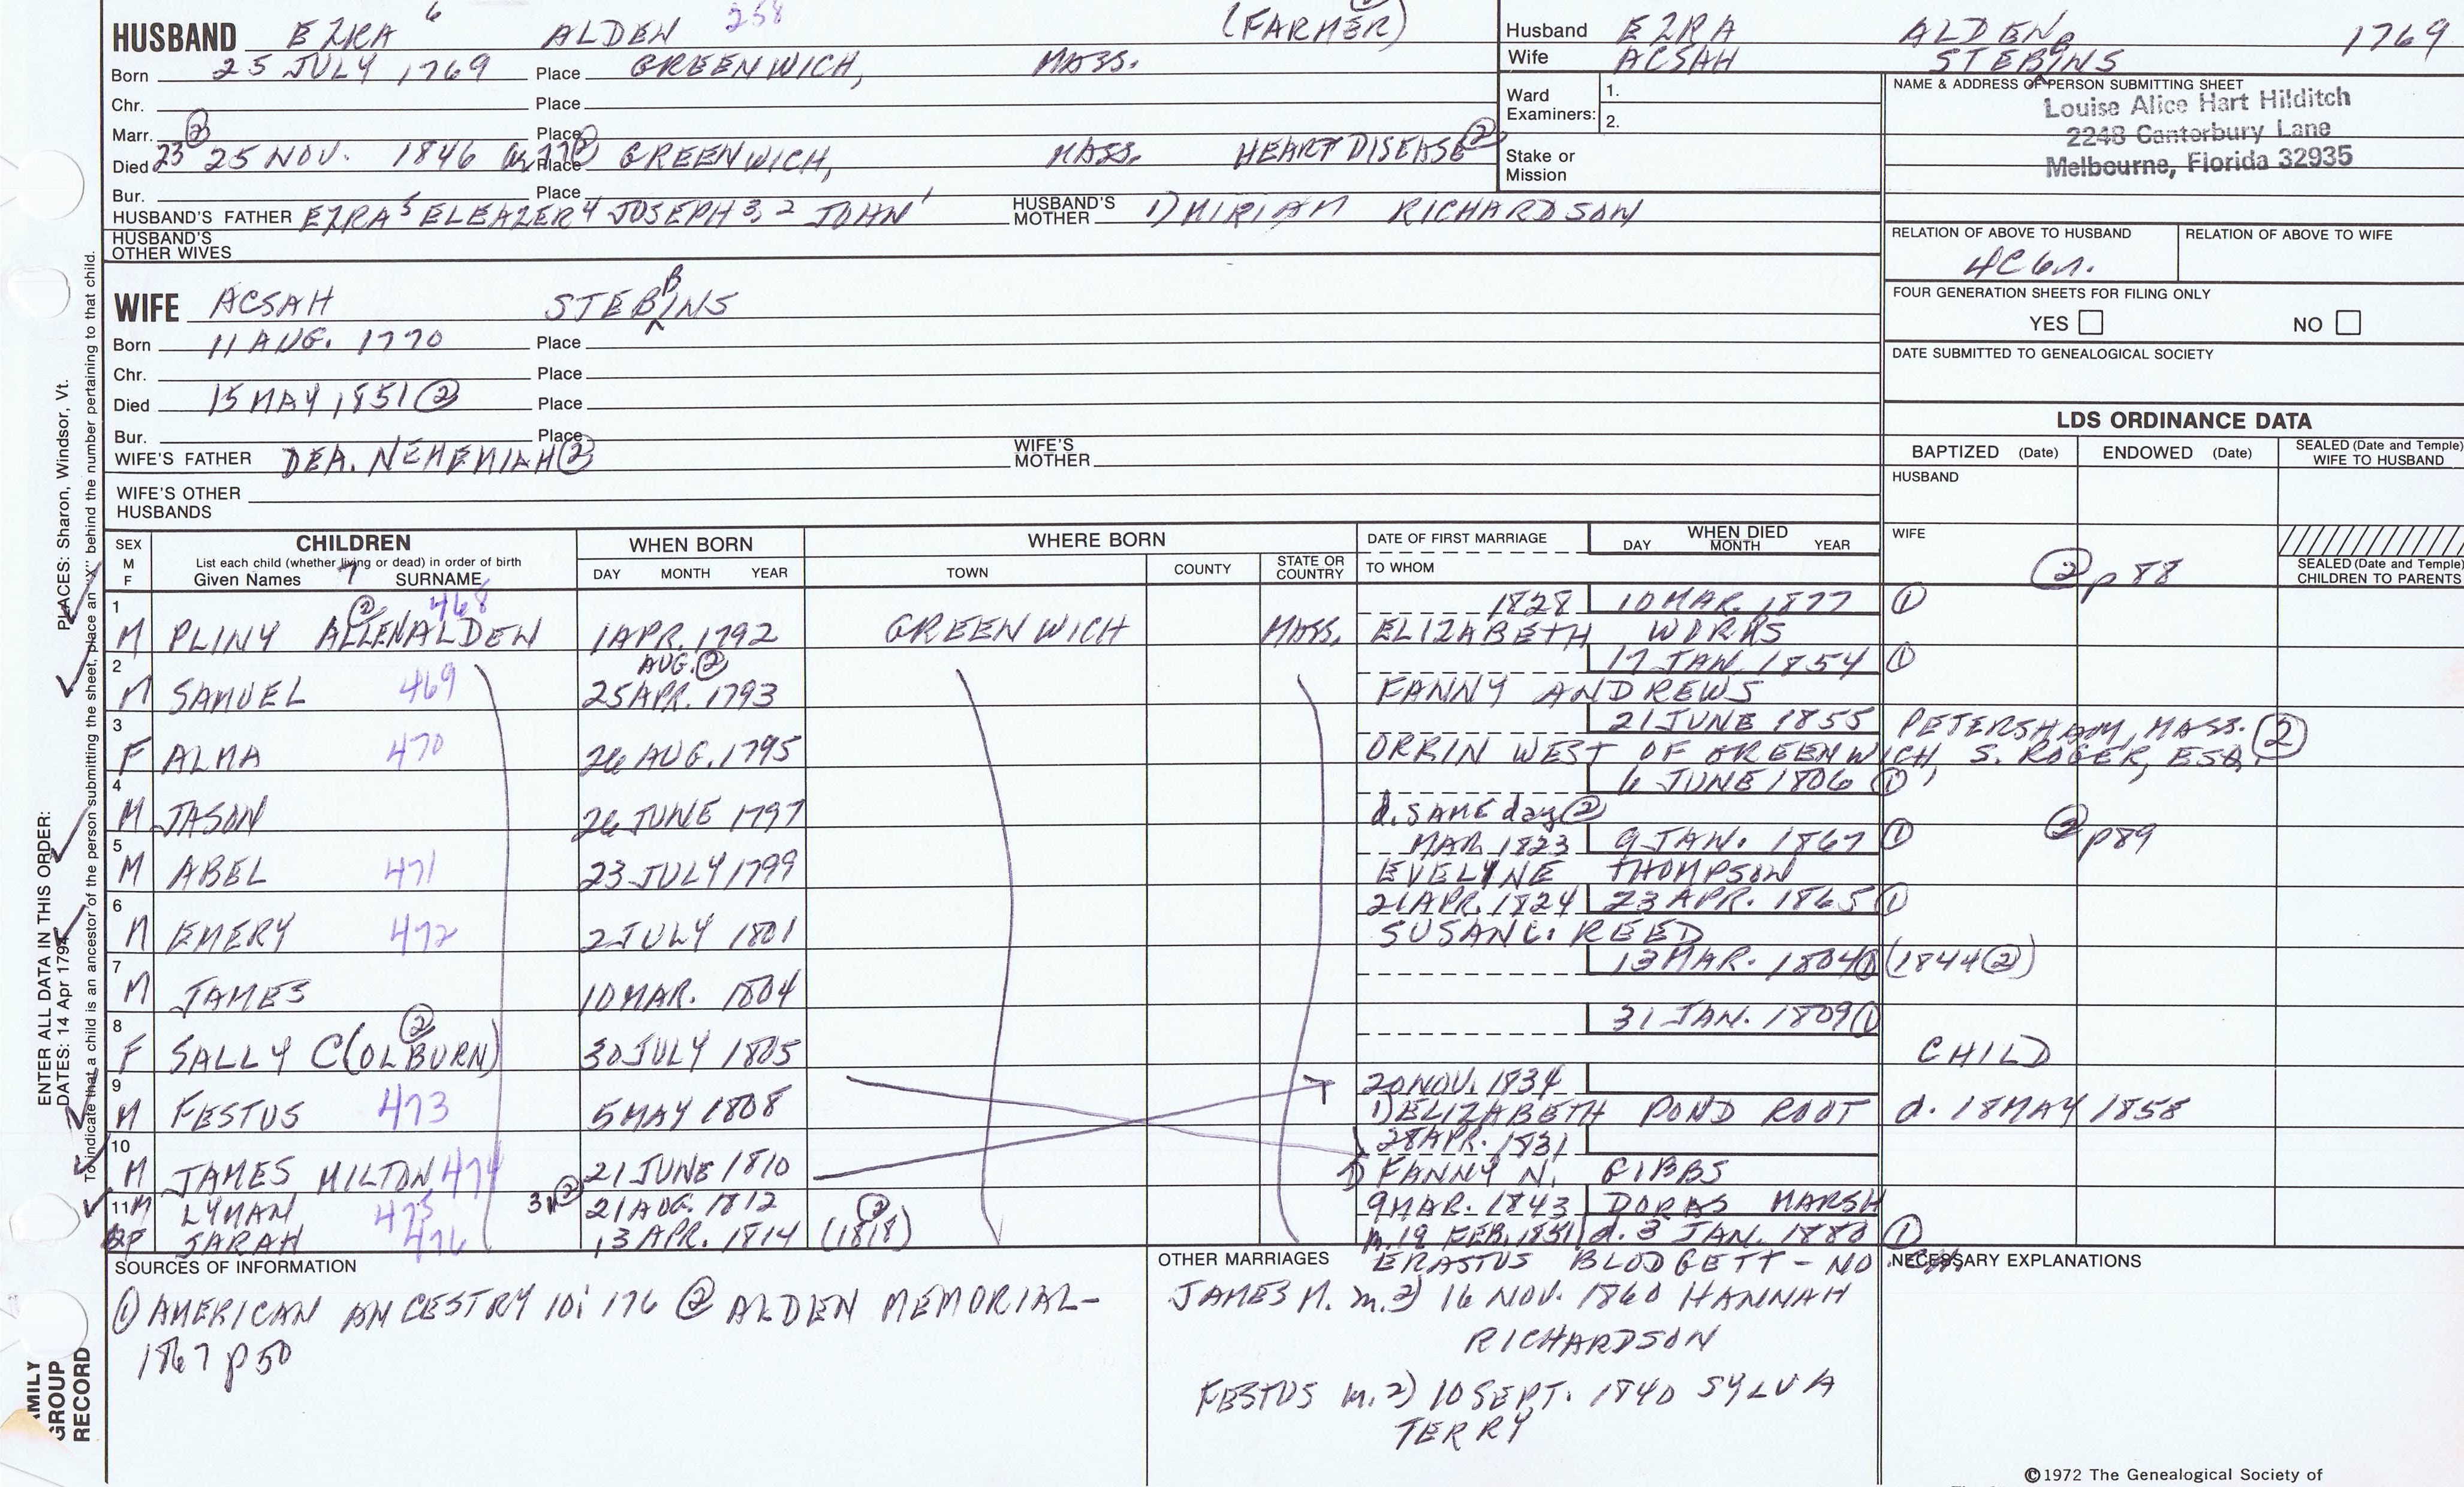 HUSBAND EZRA 6 ALDEN 258 (FARMER)
Born 25 JULY 1769 Place GREENWICH, MASS.
Chr. Place
Marr. ② Place
Died 23 25 NOV. 1846 Place GREENWICH, MASS. HEART DISEASE ②
Bur. Place
HUSBAND'S FATHER EZRA 5 ELEAZER 4 JOSEPH 3, 2 JOHN 1 HUSBAND'S MOTHER 1) MIRIAM RICHARDSON
HUSBAND'S OTHER WIVES
Husband EZRA ALDEN 1769
Wife ACSAH STEBBINS
Ward Examiners: 1.
2.
Stake or Mission
NAME & ADDRESS OF PERSON SUBMITTING SHEET
Louise Alice Hart Hilditch
2248 Canterbury Lane
Melbourne, Florida 32935
RELATION OF ABOVE TO HUSBAND RELATION OF ABOVE TO WIFE
4C6r.
FOUR GENERATION SHEETS FOR FILING ONLY
YES NO
DATE SUBMITTED TO GENEALOGICAL SOCIETY
WIFE ACSAH STEBBINS
Born 11 AUG. 1770 Place
Chr. Place
Died 15 MAY 1851 ② Place
Bur. Place
WIFE'S FATHER DEA. NEHEMIAH ② WIFE'S MOTHER
WIFE'S OTHER HUSBANDS
LDS ORDINANCE DATA
BAPTIZED (Date) ENDOWED (Date) SEALED (Date and Temple) WIFE TO HUSBAND
HUSBAND
WIFE
② p 88
SEALED (Date and Temple) CHILDREN TO PARENTS
SEX M F CHILDREN List each child (whether living or dead) in order of birth Given Names 7 SURNAME WHEN BORN DAY MONTH YEAR WHERE BORN TOWN COUNTY STATE OR COUNTRY DATE OF FIRST MARRIAGE TO WHOM WHEN DIED DAY MONTH YEAR
② 468 1828 10 MAR. 1877 ①
1 M PLINY ALLEN ALDEN 1 APR. 1792 GREENWICH MASS. ELIZABETH WORKS
AUG. ② 17 JAN. 1854 ①
2 M SAMUEL 469 25 APR. 1793 FANNY ANDREWS
21 JUNE 1855 PETERSHAM, MASS. ②
3 F ALMA 470 26 AUG. 1795 ORRIN WEST OF GREENWICH, S. ROGER, ESQ.
6 JUNE 1806 ①
4 M JASON 26 JUNE 1797 d. SAME day ②
MAR. 1823 9 JAN. 1867 ① ② p89
5 M ABEL 471 23 JULY 1799 EVELYNE THOMPSON
21 APR. 1824 23 APR. 1865 ①
6 M EMERY 472 2 JULY 1801 SUSAN L. REED
13 MAR. 1804 ① (1844 ②)
7 M JAMES 10 MAR. 1804
② 31 JAN. 1809 ①
8 F SALLY C(OLBURN) 30 JULY 1805 CHILD
20 NOV. 1834
9 M FESTUS 473 5 MAY 1808 1) ELIZABETH POND ROOT d. 18 MAY 1858
28 APR. 1831
10 M JAMES MILTON 474 21 JUNE 1810 1) FANNY N. GIBBS
11 M LYMAN 475 31 ② 21 AUG. 1812 9 MAR. 1843 DORAS MARSH
12 F SARAH 476 13 APR. 1814 (1818) ② m. 19 FEB. 1851 d. 3 JAN. 1880 ①
ERASTUS BLODGETT - NO CH.
SOURCES OF INFORMATION
① AMERICAN ANCESTRY 10: 176 ② ALDEN MEMORIAL-
1867 p 50
OTHER MARRIAGES
JAMES M. m. 2) 16 NOV. 1860 HANNAH
RICHARDSON
FESTUS m. 2) 10 SEPT. 1840 SYLVA
TERRY
NECESSARY EXPLANATIONS
©1972 The Genealogical Society of
ENTER ALL DATA IN THIS ORDER:
DATES: 14 Apr 1794 PLACES: Sharon, Windsor, Vt.
To indicate that a child is an ancestor of the person submitting the sheet, place an "X" behind the number pertaining to that child.
FAMILY GROUP RECORD